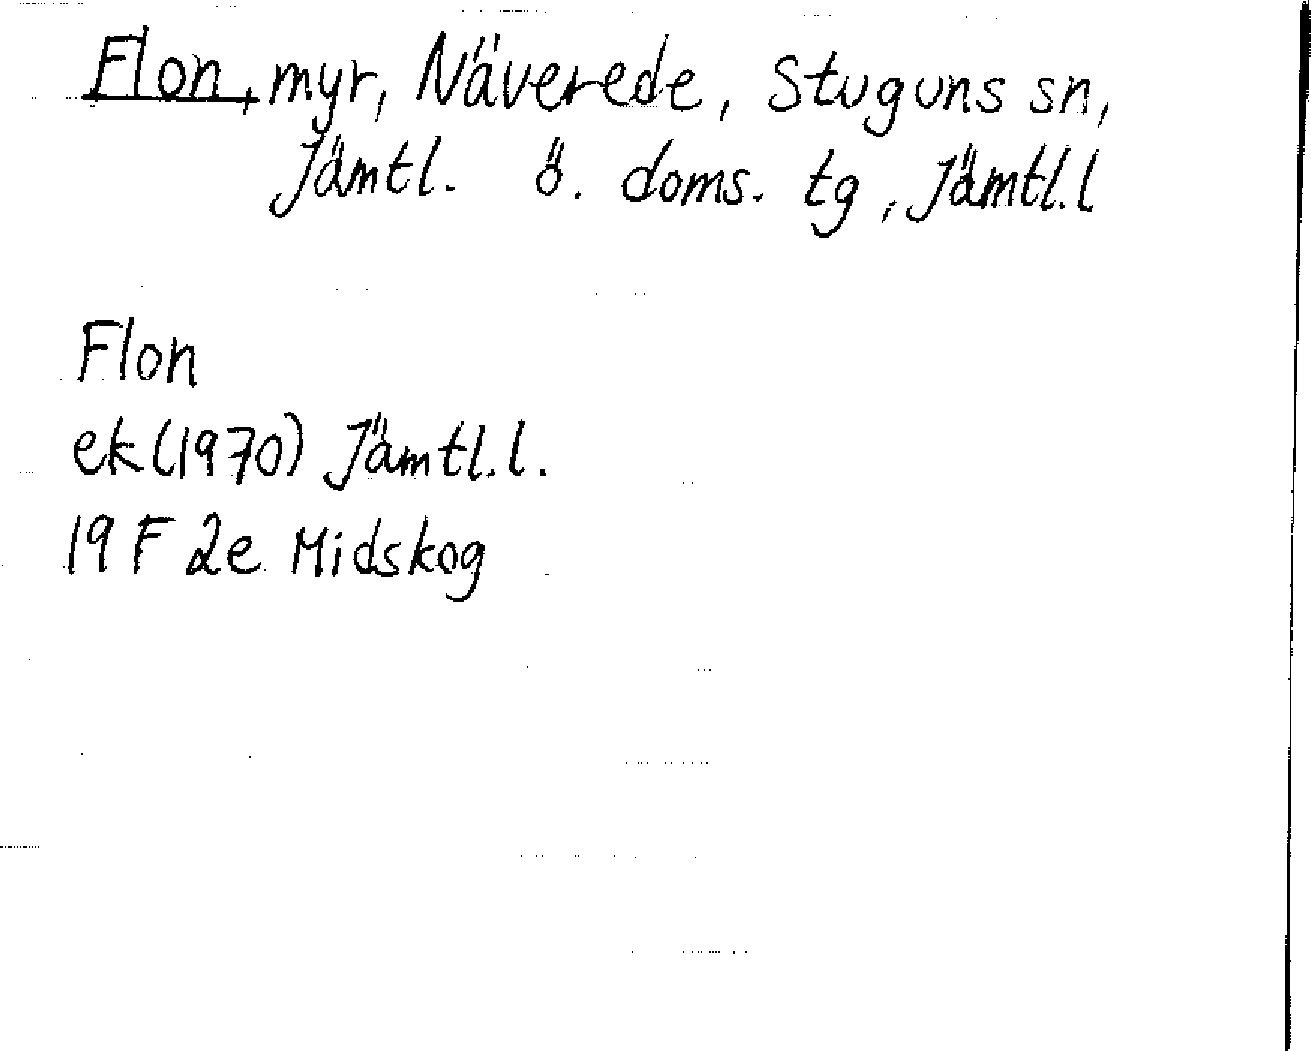 Flon, myr, Näverede, Stuguns sn,
Jämtl. ö. doms. tg, Jämtl. l
Flon
ek (1970) Jämtl. l.
19 F 2e Midskog